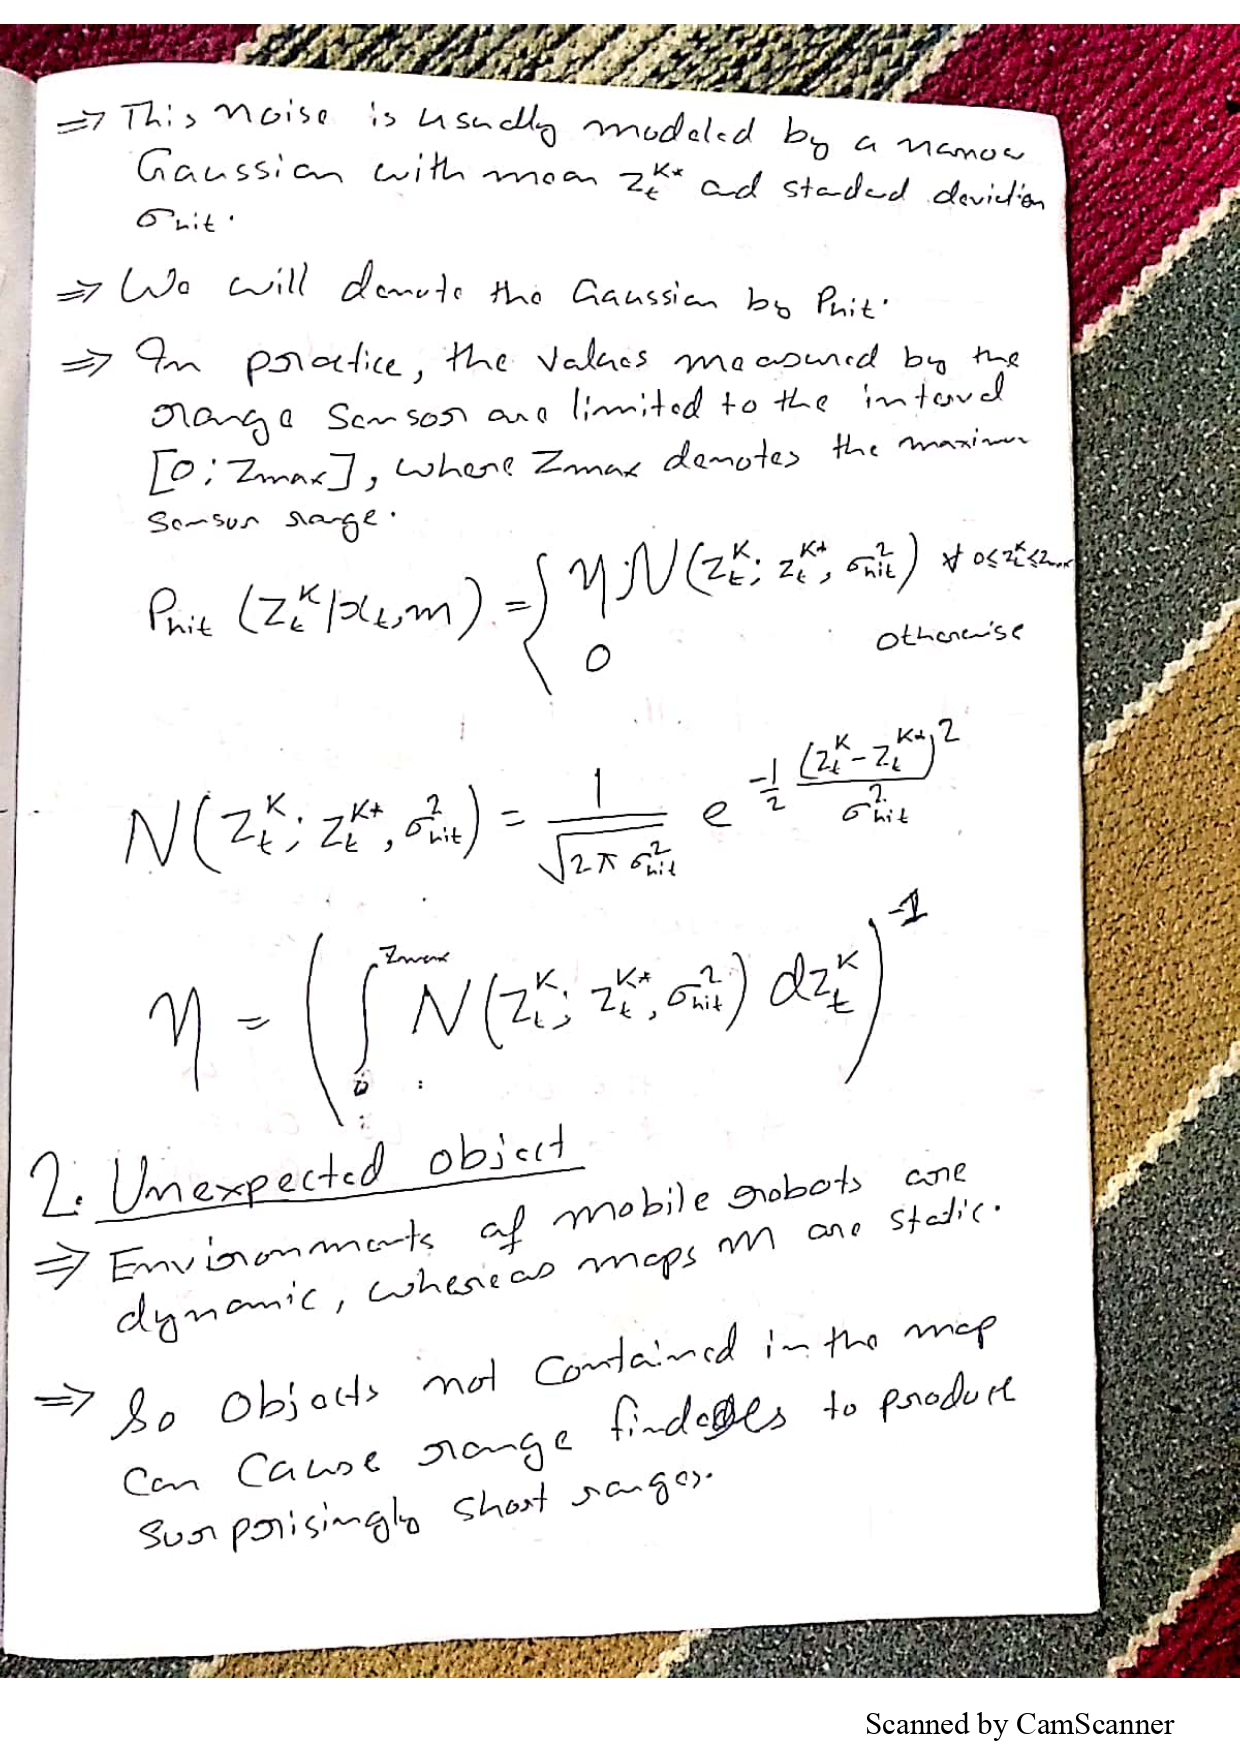 ⇒ This noise is usually modeled by a narrow
Gaussian with mean z_t^{k*} and standard deviation
σ_hit.
⇒ We will denote the Gaussian by P_hit.
⇒ In practice, the values measured by the
range sensor are limited to the interval
[0; Z_max], where Z_max denotes the maximum
sensor range.
P_hit (z_t^k | x_t, m) = { η N(z_t^k; z_t^{k*}, σ_hit^2) ∀ 0 ≤ z_t^k ≤ z_max
0 otherwise
N(z_t^k; z_t^{k*}, σ_hit^2) = 1 / √(2π σ_hit^2) e^{-1/2 (z_t^k - z_t^{k*})^2 / σ_hit^2}
η = ( ∫_0^{z_max} N(z_t^k; z_t^{k*}, σ_hit^2) dz_t^k )^{-1}
2. Unexpected object
⇒ Environments of mobile robots are
dynamic, whereas maps m are static.
⇒ So objects not contained in the map
can cause range finders to produce
surprisingly short ranges.
Scanned by CamScanner